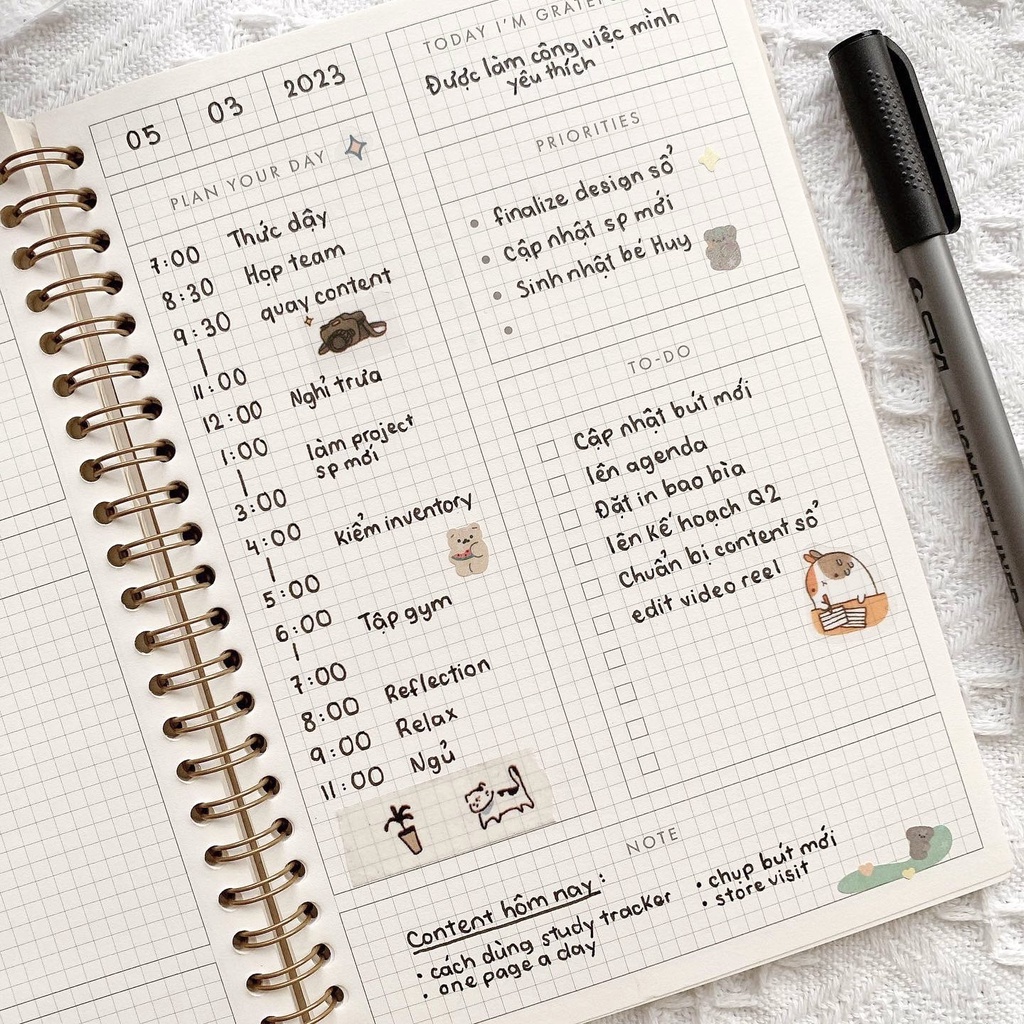 05 03 2023
PLAN YOUR DAY
7:00 Thức dậy
8:30 Họp team
9:30 quay content
11:00
12:00 Nghỉ trưa
1:00 làm project
sp mới
3:00
4:00 Kiểm inventory
5:00
6:00 Tập gym
7:00
8:00 Reflection
9:00 Relax
11:00 Ngủ
TODAY I'M
Được làm công việc mình
yêu thích
PRIORITIES
• finalize design sổ
• Cập nhật sp mới
• Sinh nhật bé Huy
•
TO-DO
Cập nhật bút mới
lên agenda
Đặt in bao bìa
lên kế hoạch Q2
Chuẩn bị content sổ
edit video reel
NOTE
Content hôm nay:
• cách dùng study tracker
• one page a day
• chụp bút mới
• store visit
PIGMENT LINER